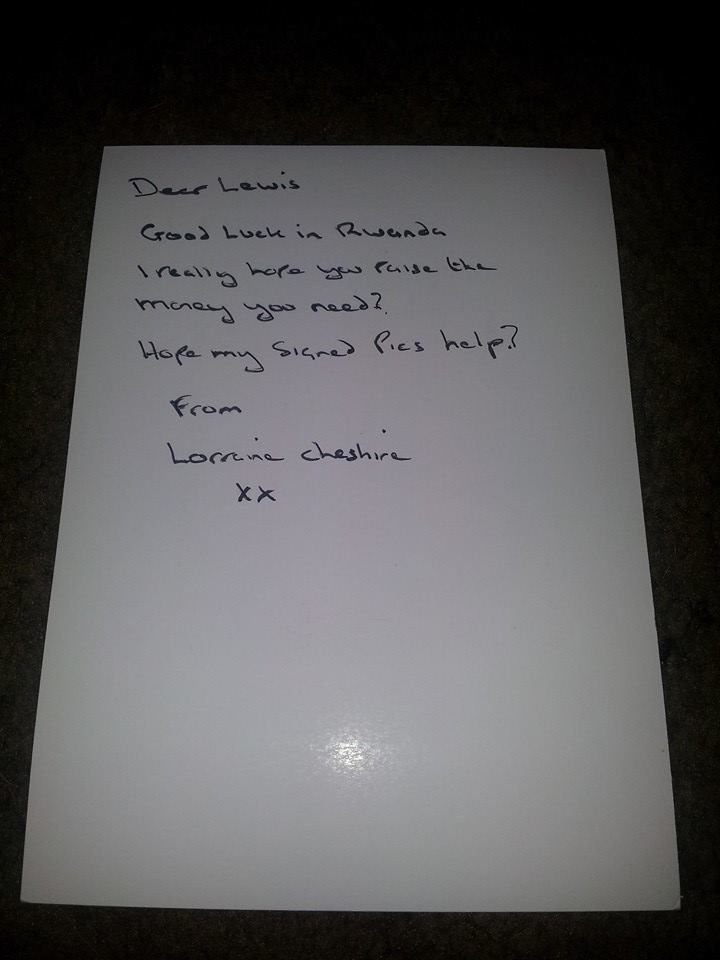 Dear Lewis
Good Luck in Rwanda
I really hope you raise the
money you need?
Hope my Signed Pics help?
From
Lorraine Cheshire
xx